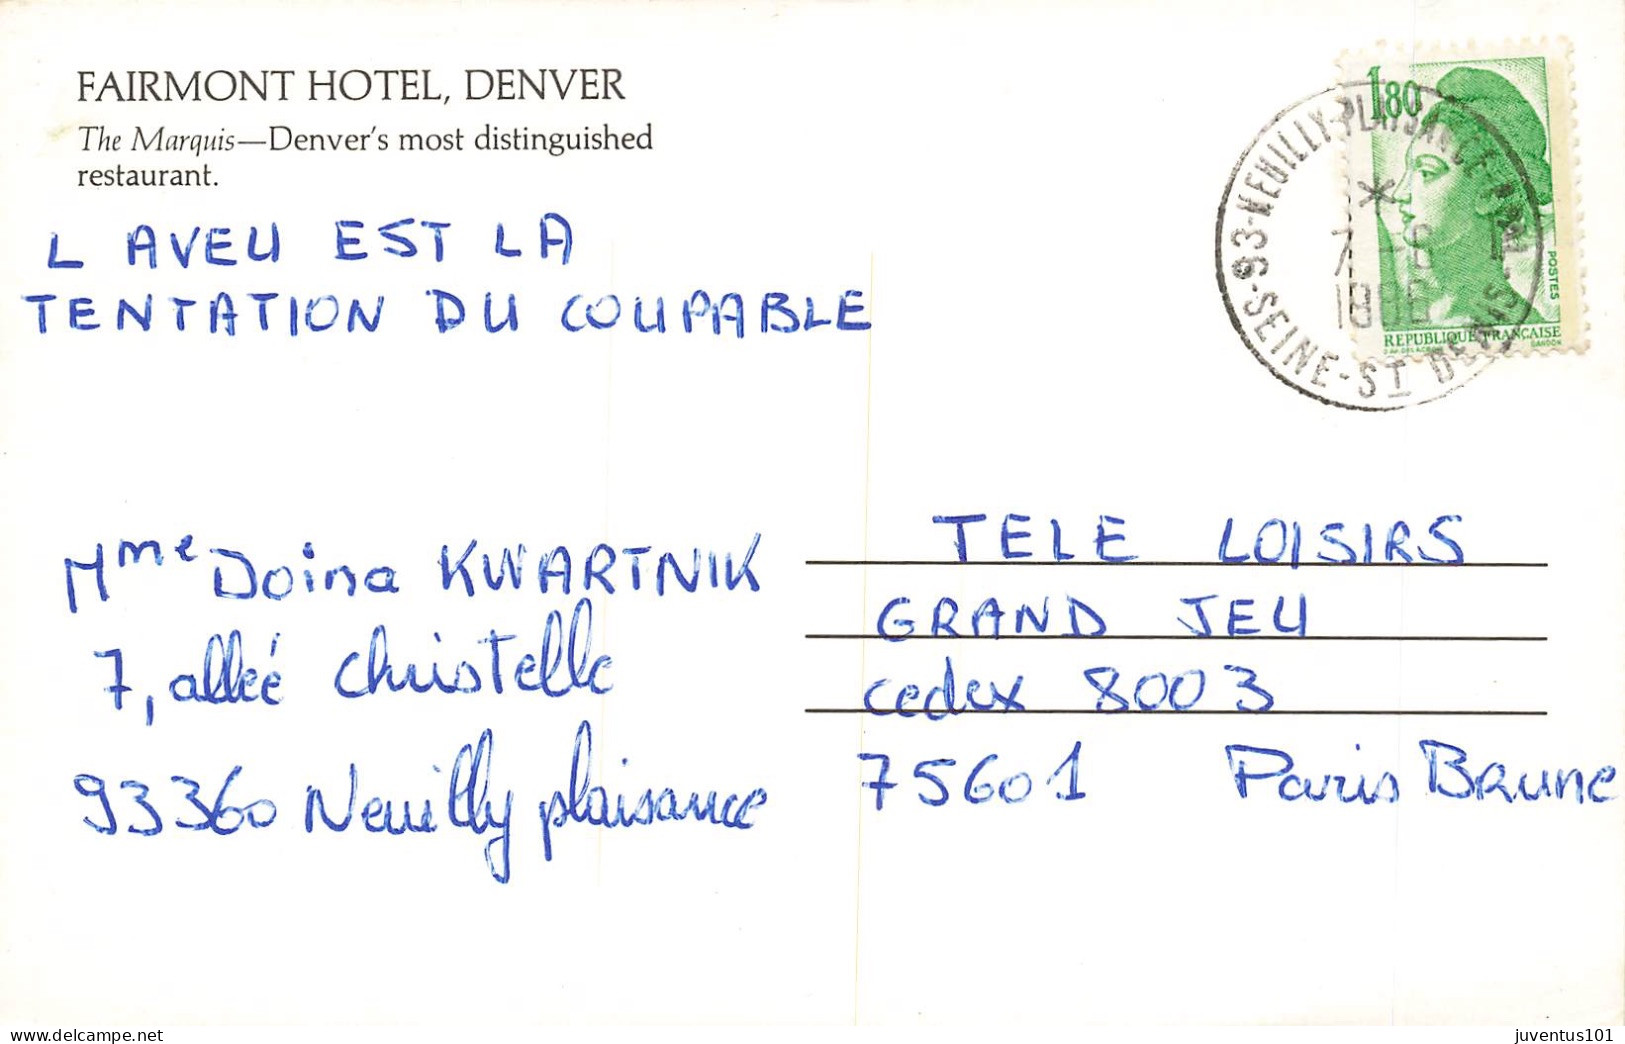 FAIRMONT HOTEL, DENVER
The Marquis—Denver's most distinguished
restaurant.
L AVEU EST LA
TENTATION DU COUPABLE
Mme Doina KWARTNIK
7, alleé Christelle
93360 Neuilly plaisance
1,80
REPUBLIQUE FRANÇAISE
POSTES
GANDON
93-NEUILLY-PLAISANCE
SEINE-ST DENIS
TELE LOISIRS
GRAND JEU
cedex 8003
75601 Paris Brune
delcampe.net
juventus101